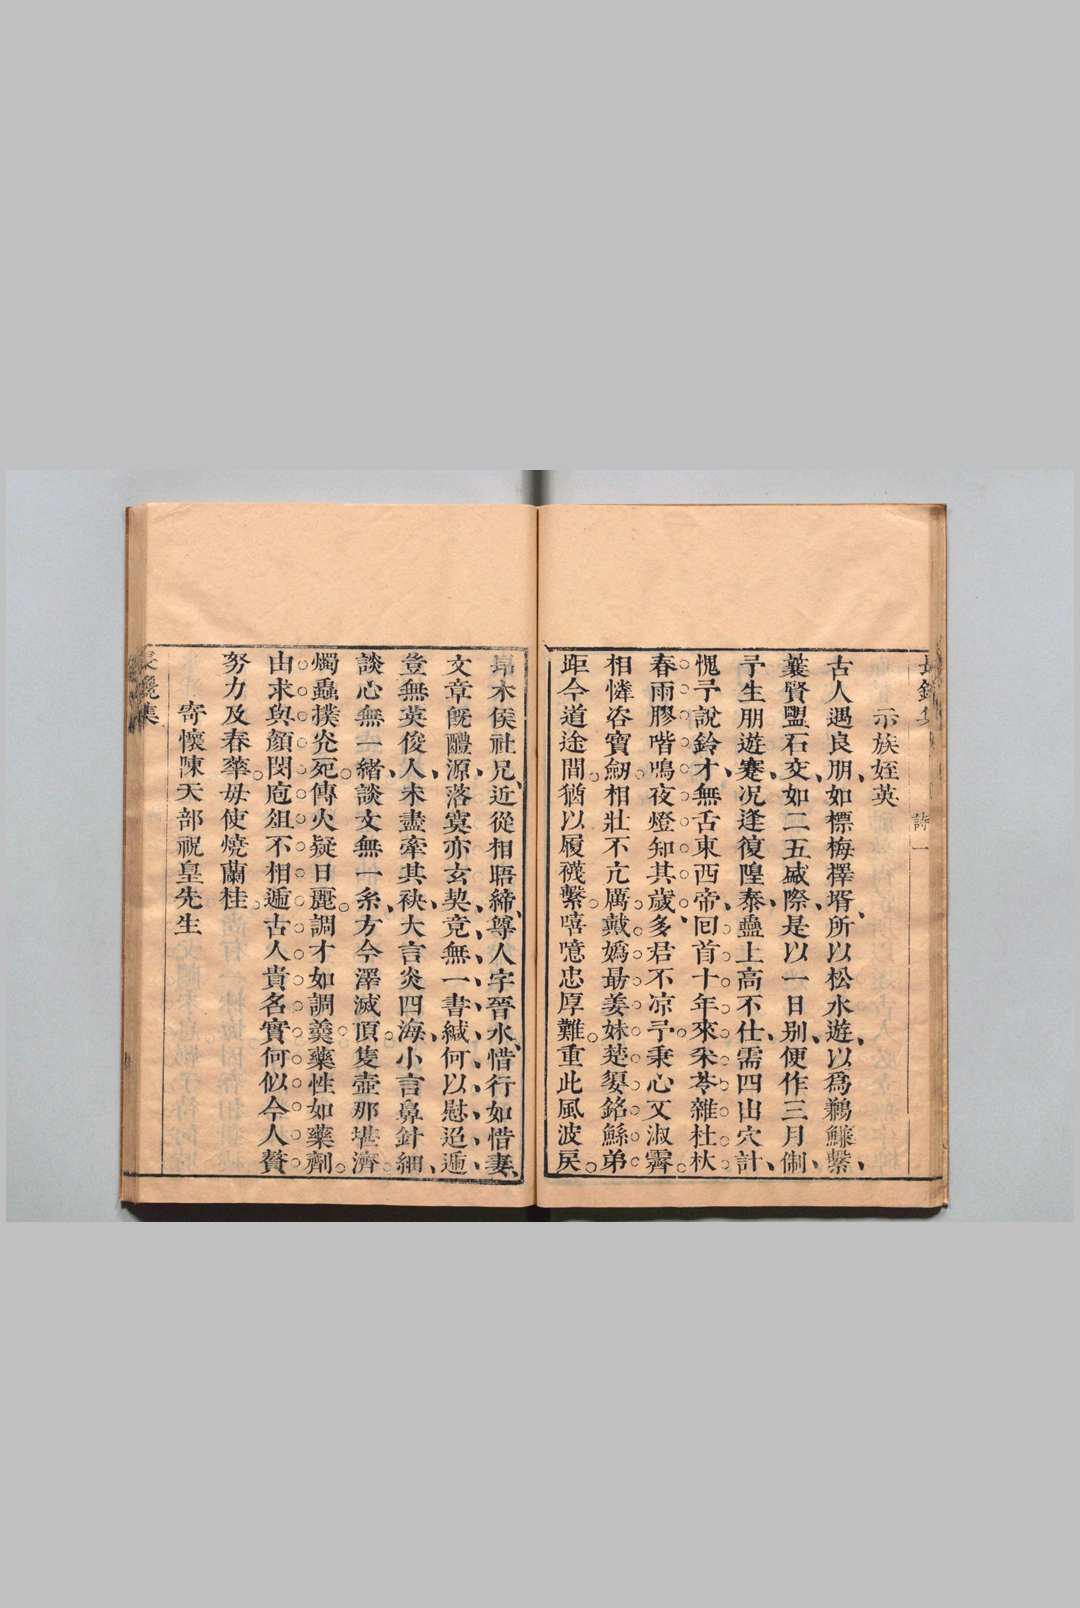 示族姪英
古人遇良朋如標梅擇壻所以松水遊以爲鶼鰈繫
曩賢盟石交如二五感際是以一日別便作三月制
予生朋遊蹇况逢復隍泰蠱上高不仕需四出穴計
愧予說鈴才無舌東西帝回首十年來釆苓雜杜杕
春雨膠喈鳴夜燈知其歲多君不凉予秉心又淑霽
相憐咨寶劒相壯不亢厲戴嬀朂姜妹楚媭銘鯀弟
歫今道途間猶以履襪繫嘻噫忠厚難重此風波戾
帠木矦社兄近從相晤締尊人字晉水惜行如惜妻
文章旣醴源落寞亦玄契竟無一書緘何以慰迢遞
豈無英俊人未盡牽其袂大言炎四海小言鼻針細
談心無一緒談文無一糸方今澤滅頂隻壺那堪濟
燭蟲撲炎死傳火疑日麗調才如調羹藥性如藥劑
由求與顏閔庖俎不相遞古人貴名實何似今人贅
努力及春華毋使燒蘭桂
寄懷陳天部祝皇先生
詩一